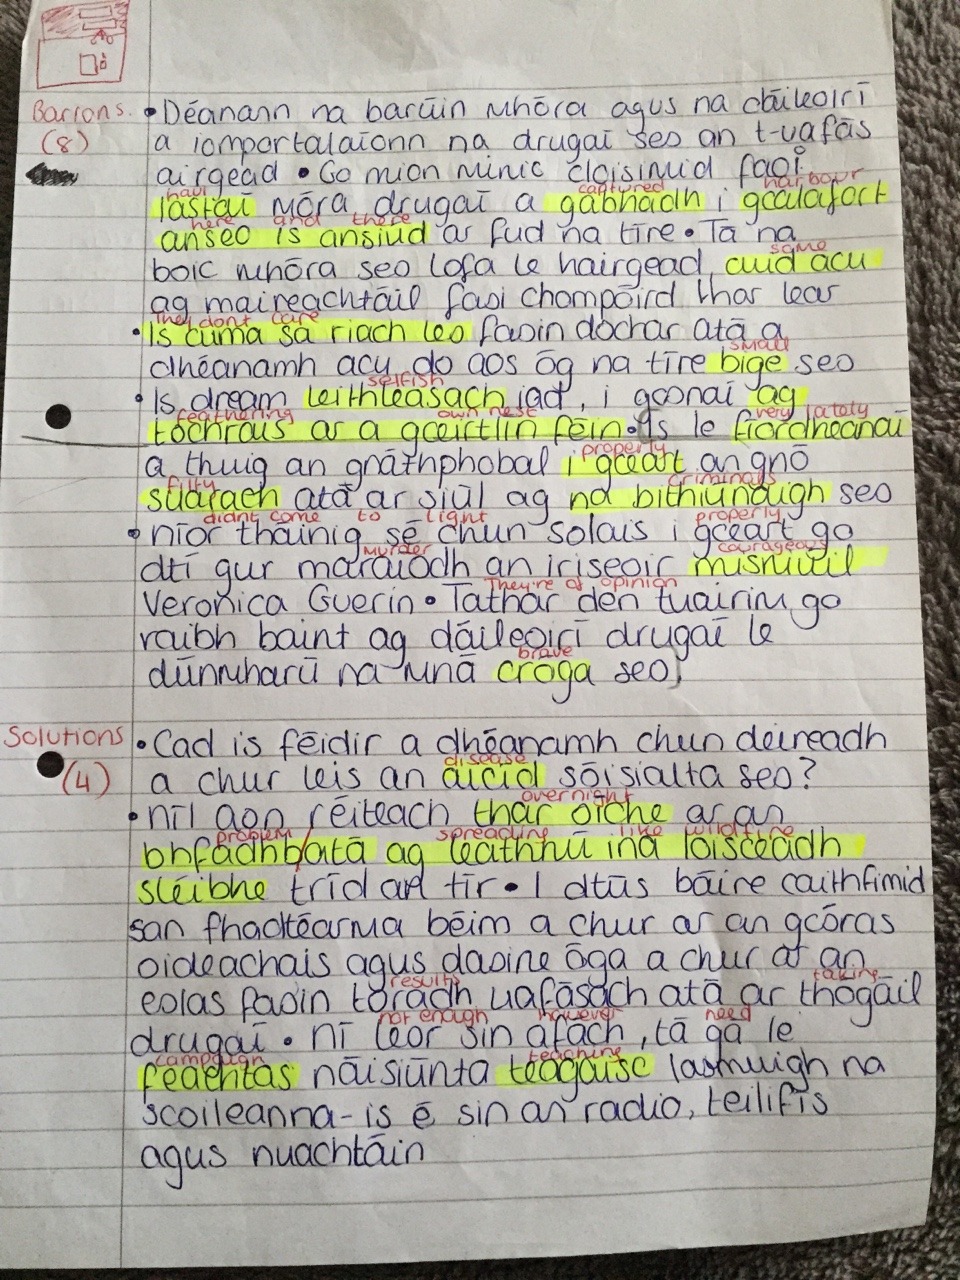 Barrons. • Déanann na barúin mhóra agus na dáileoirí
(8) a iomportálaíonn na drugaí seo an t-uafás
airgead • Go mion minic cloisimid faoi
haul captured harbour
lastaí móra drugaí a gabhadh i gcalafort
here and there
anseo is ansiúd ar fud na tíre • Tá na
some
boic mhóra seo lofa le hairgead, cuid acu
ag maireachtáil faoi chompóird thar lear
They dont care
• Is cuma sa riach leo faoin dochar atá a
small
dhéanamh acu do aos óg na tíre bige seo
selfish
• Is dream leithleasach iad, i gconaí ag
feathering own nest very lataly
tochraus ar a gceirtlín féin • Is le fíordheanaí
properly
a thuig an gnáthphobal i gceart an gnó
filty criminals
suarach atá ar siúl ag na bithiúnaigh seo
didnt come to light properly
• níor tháinig sé chun solais i gceart go
murder courageous
dtí gur maraíodh an iriseoir misniúil
They're of opinion
Veronica Guerin • Táthar den tuairim go
raibh baint ag dáileoirí drugaí le
brave
dúnmharú na mná cróga seo
Solutions • Cad is féidir a dhéanamh chun deireadh
disease
(4) a chur leis an aicíd sóisialta seo?
overnight
• níl aon réiteach thar oíche ar an
problem spreading like wildfire
bhfadhb/atá ag leathnú ina loisceadh
sléibhe tríd an tír • I dtús báire caithfimid
san fhadtéarma béim a chur ar an gcóras
oideachais agus daoine óga a chur ar an
results taking
eolas faoin toradh uafásach atá ar thógáil
not enough however need
drugaí • ní leor sin áfach, tá gá le
campaign teaching
feachtas náisiúnta teagaisc lasmuigh na
scoileanna - is é sin an radio, teilifís
agus nuachtáin